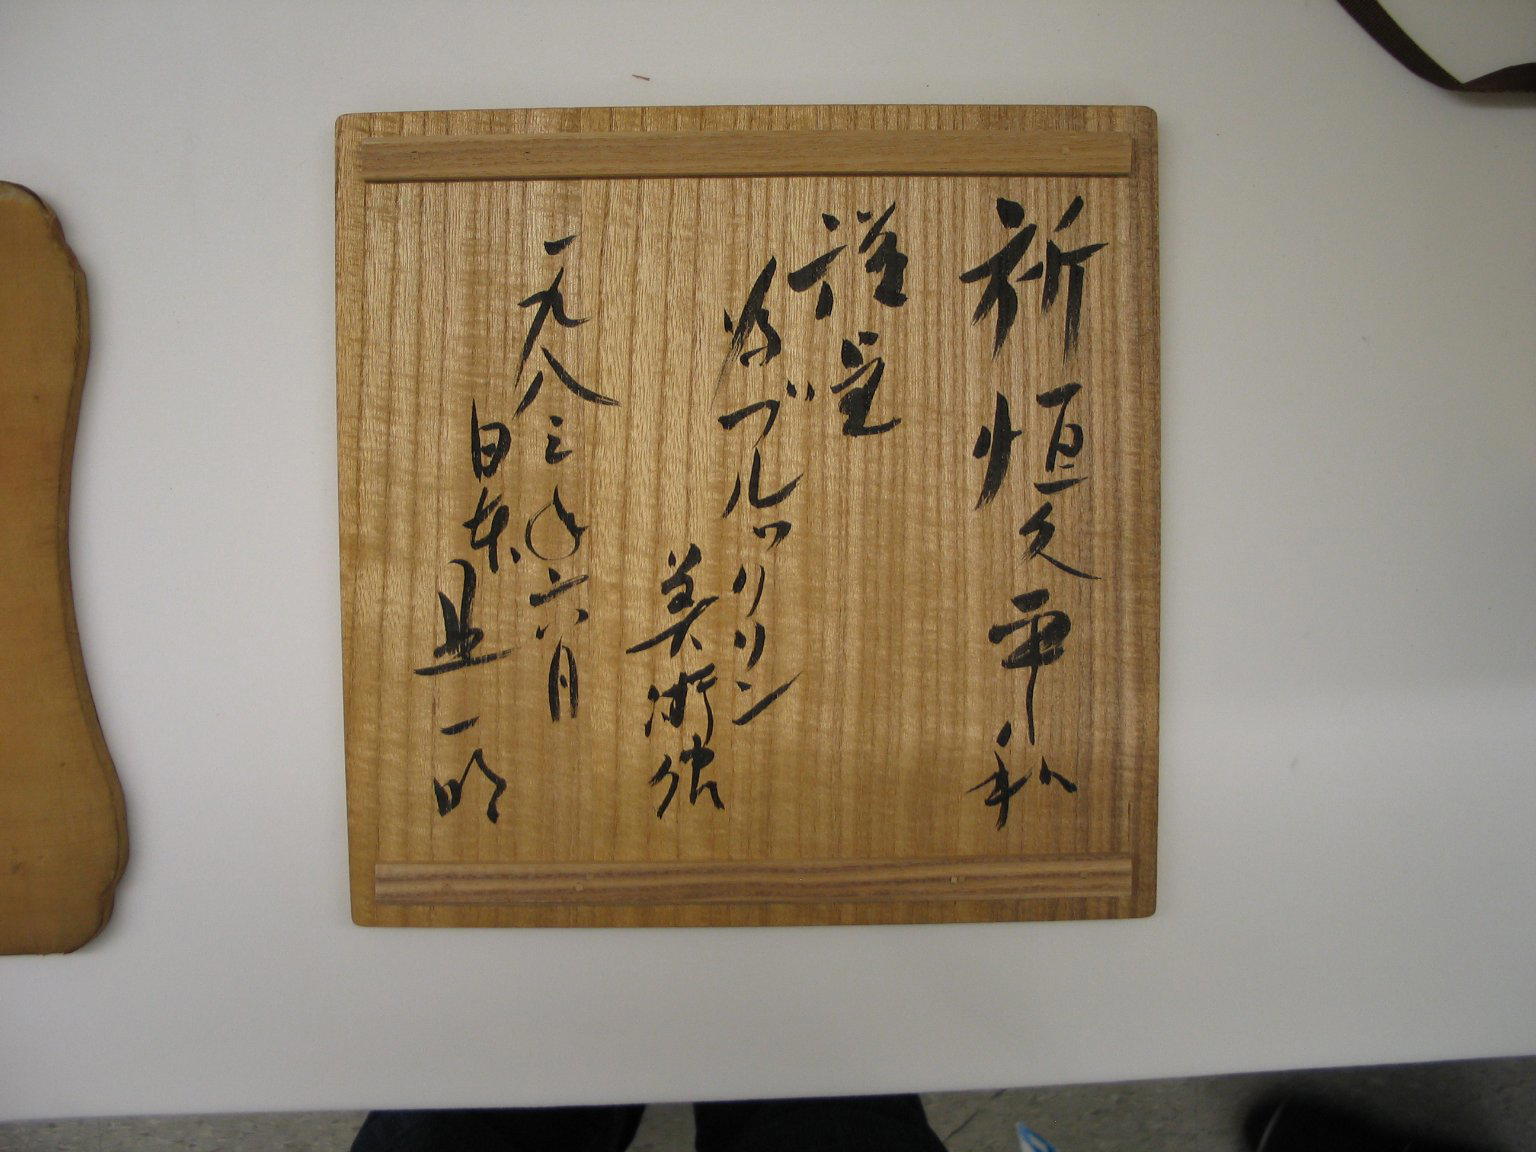 祈恒久平和
謹呈
於ブルックリン
美術館
一九八三年六月
日本 且一明